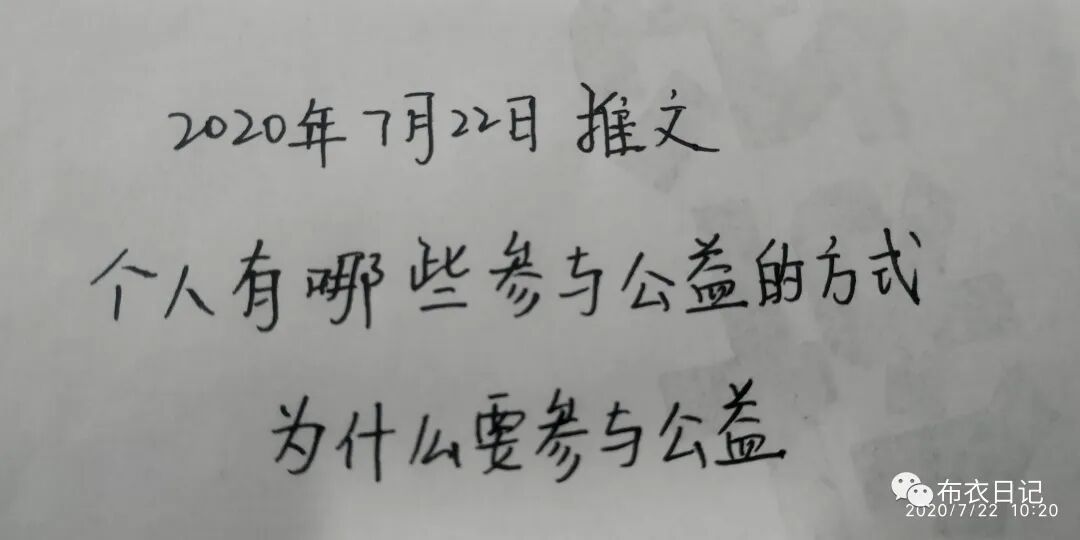 2020年7月22日推文
个人有哪些参与公益的方式
为什么要参与公益
布衣日记
2020/7/22 10:20